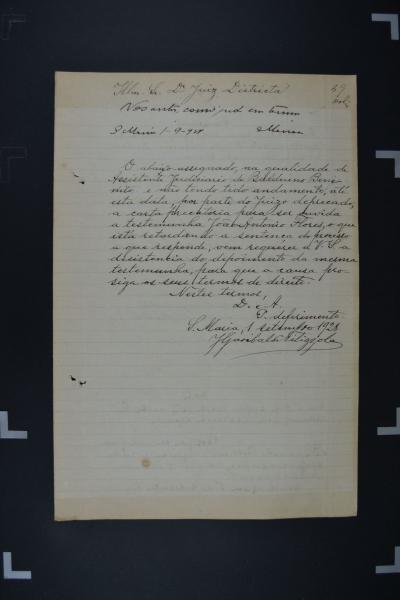 Illm. Sr. Dr. Juiz Districtal
49
Nos autos, como pede em termos
S Maria 1-9-928
O abaixo assegnado, na qualidade de
Assistente Judiciario de Balduino Bene-
vito e não tendo tido andamento, até
esta data, por parte do Juizo deprecado,
a carta precatoria para ser ouvida
a testemunha João Antonio Flores, o que
está retardando a sentença do processo
a que responde, vem requerer a V. S. a
desistencia do depoimento da mesma
testemunha, para que a causa pro-
siga os seus termos de direito.
Nestes termos,
D. e A.
P. deferimento.
S. Maria, 1 setembro 1928